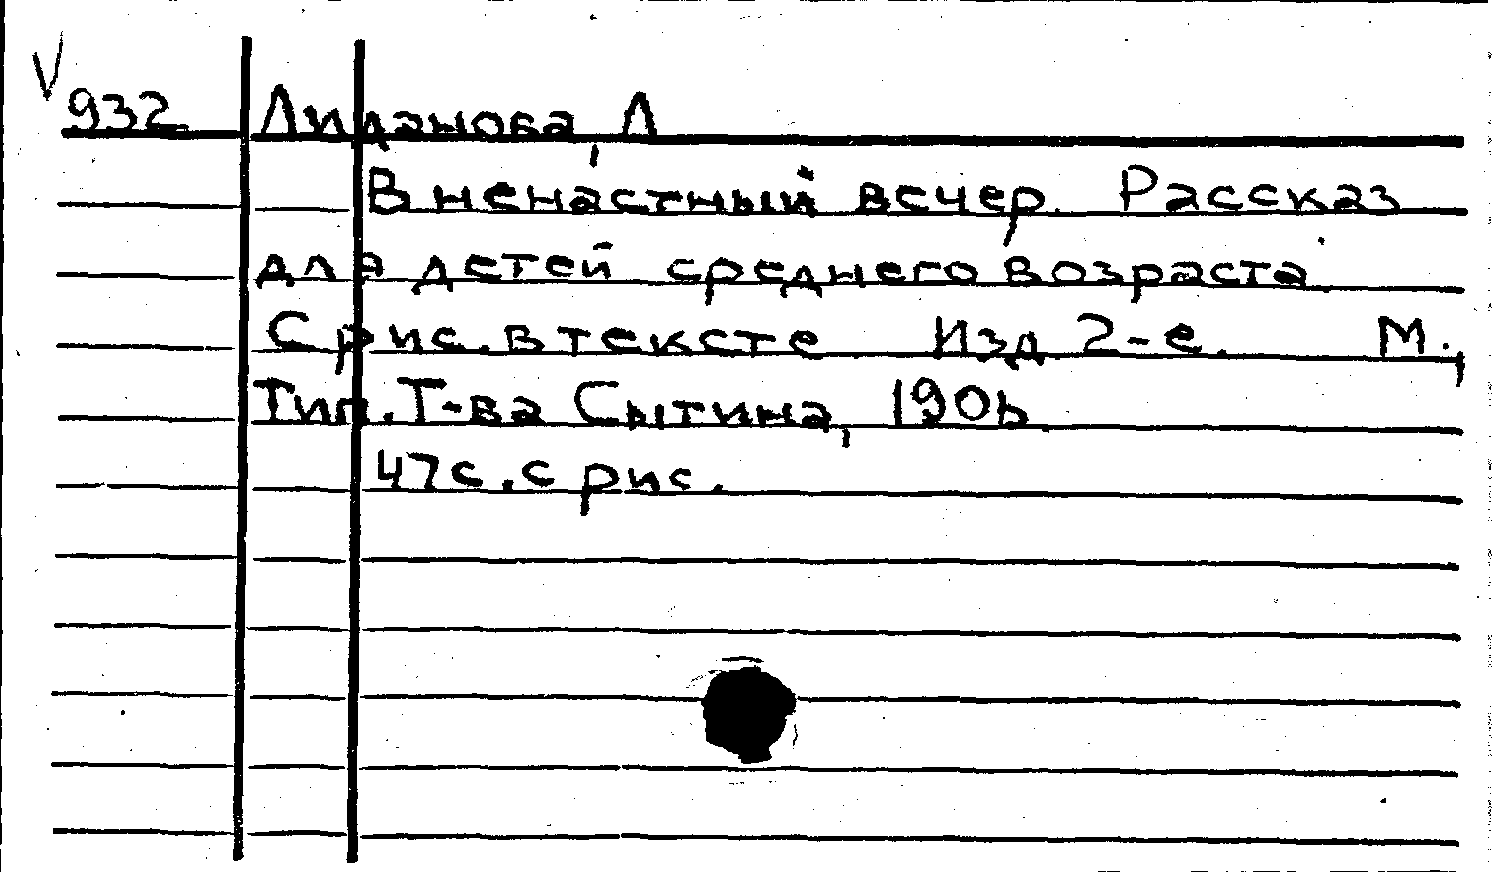 V
932 Лиданова, Л
В ненастный вечер. Рассказ
для детей среднего возраста
С рис. в тексте Изд 2-е. М.,
Тип. Т-ва Сытина, 190b
47 с. с рис.